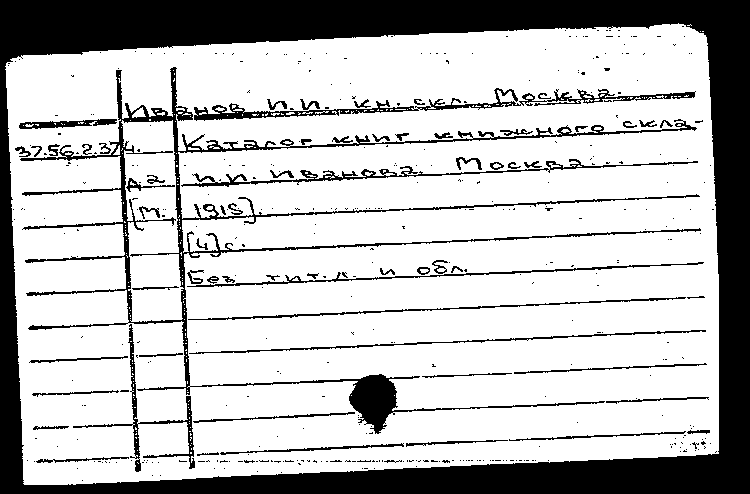 Иванов И.И. кн. скл. Москва.
37.56.2.374. Каталог книг книжного скла-
да И.И. Иванова. Москва...
[М., 1915].
[4] с.
Без тит. л. и обл.